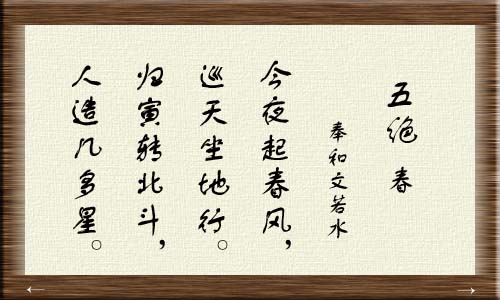 五绝 春
奉和文若水
今夜起春风，
巡天坐地行。
归寅转北斗，
人造几多星。
← →